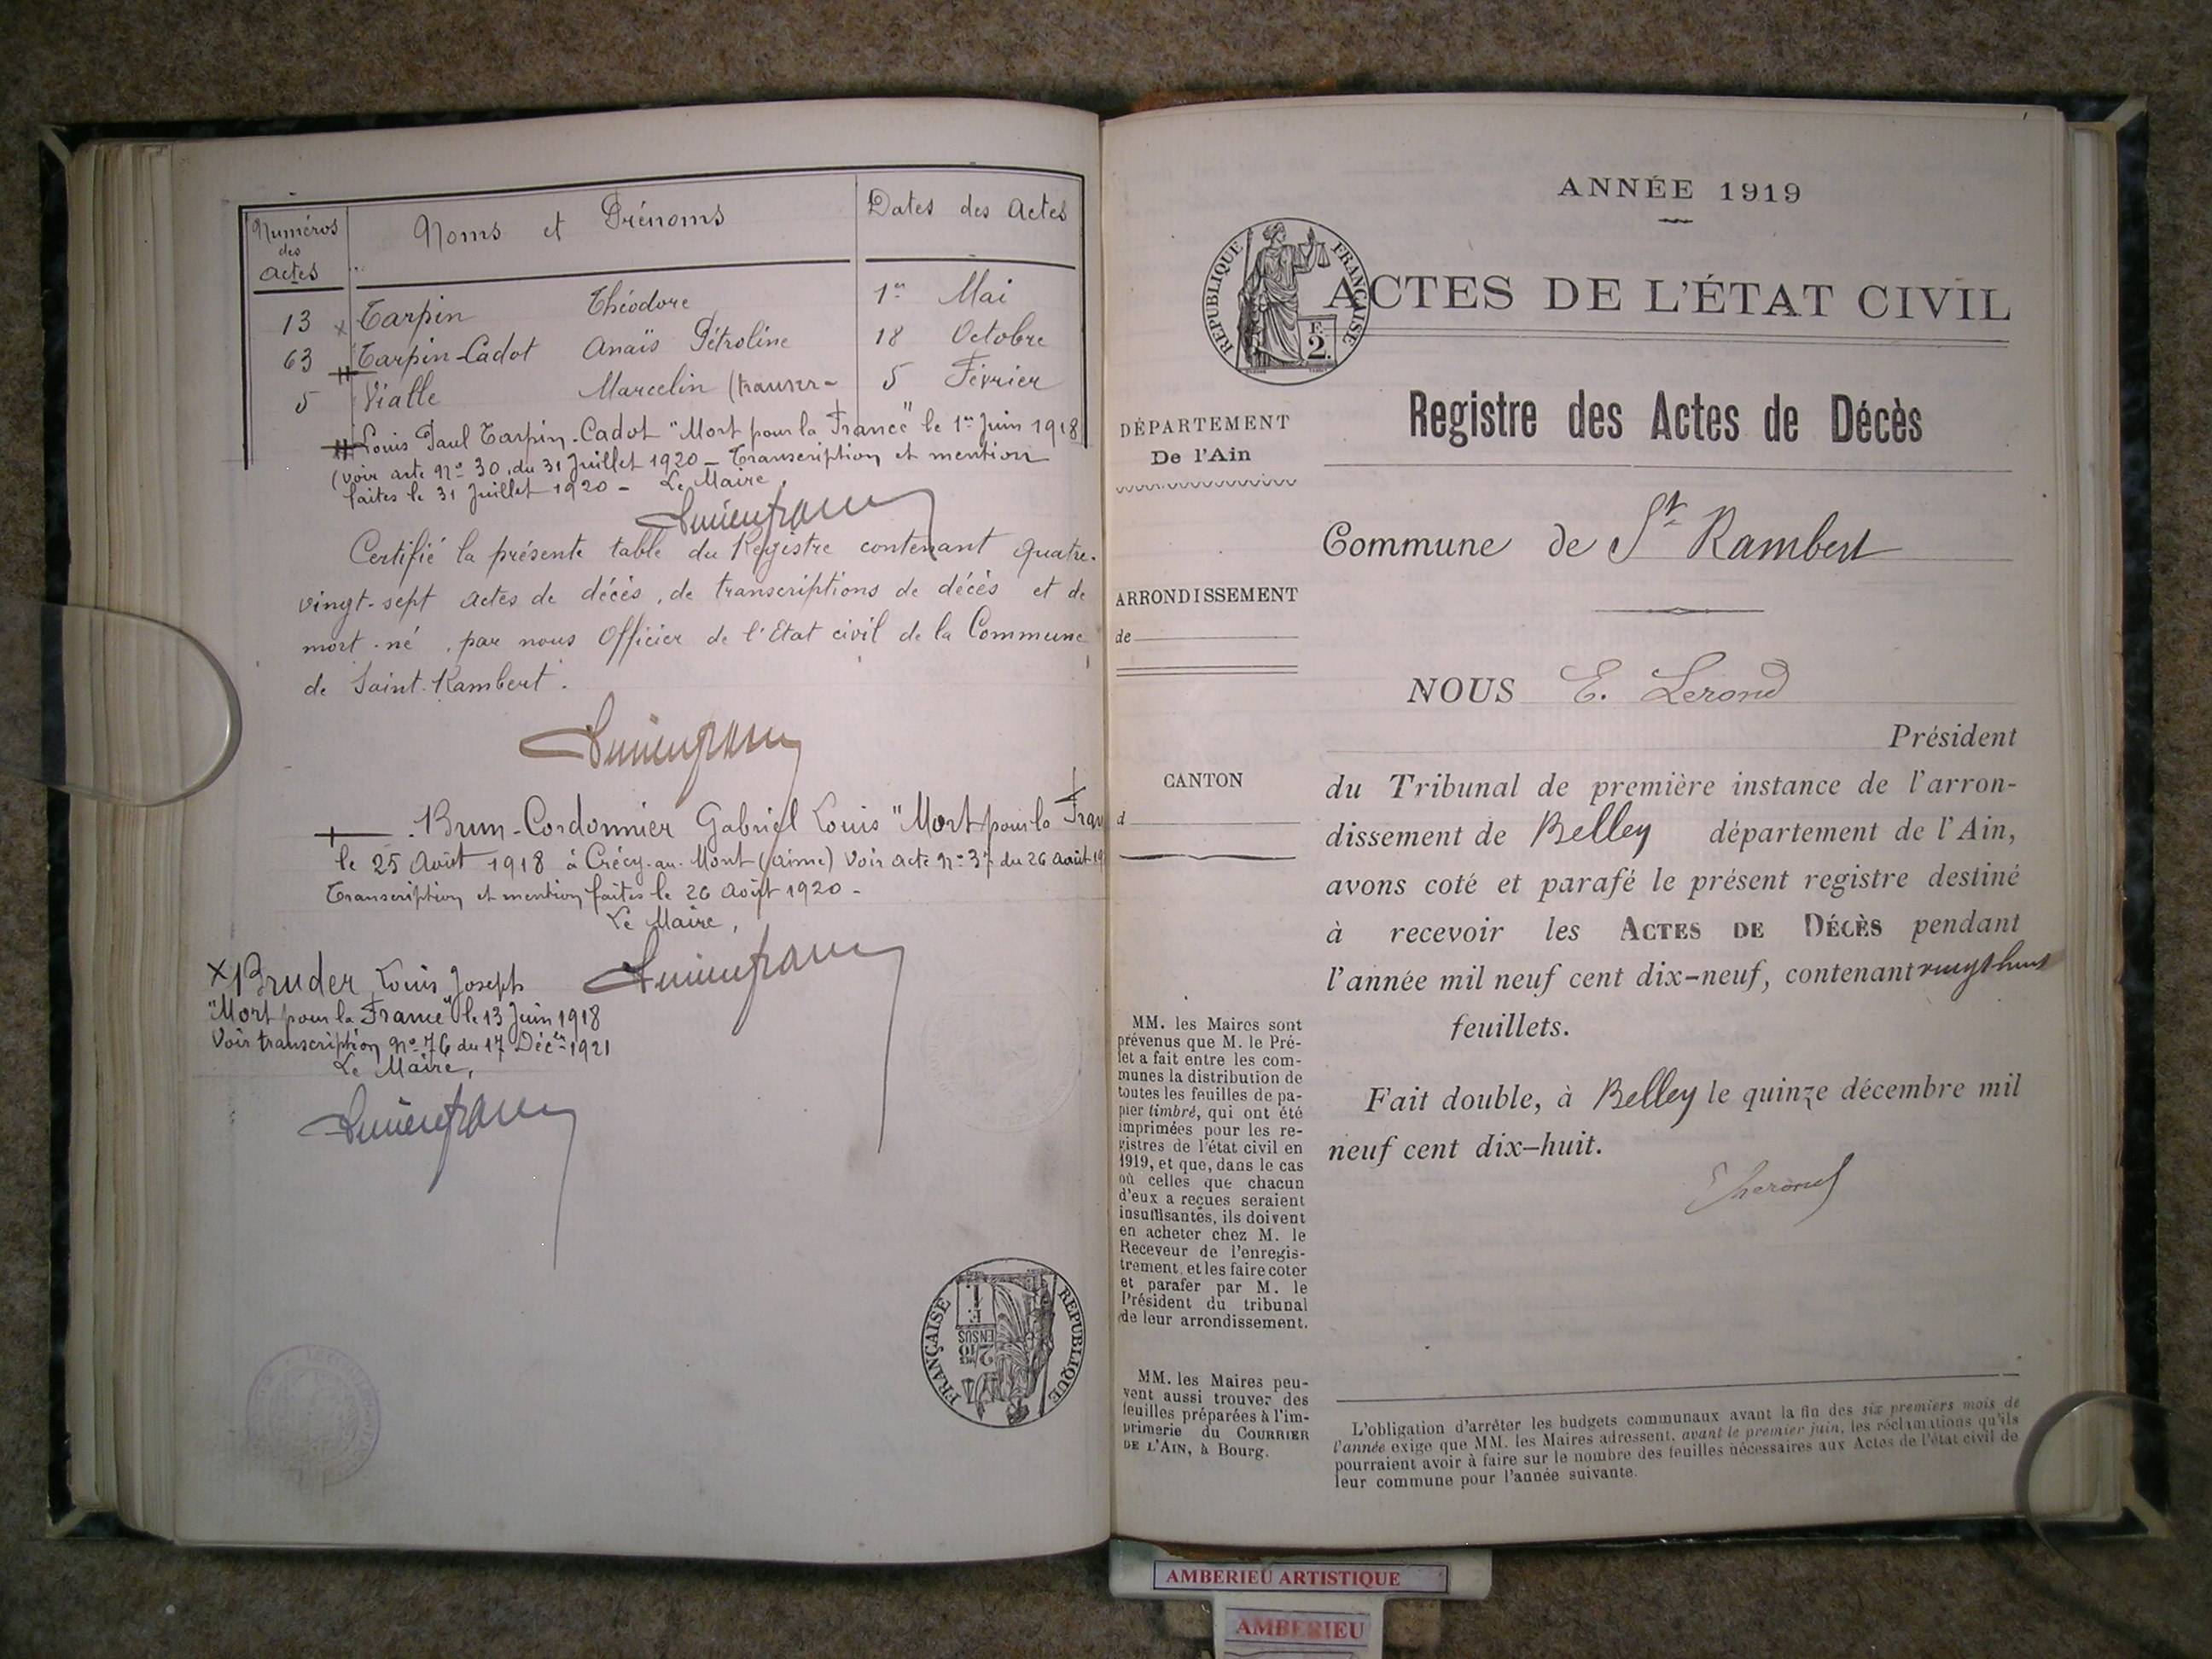 Numéros des Actes
Noms et Prénoms
Dates des Actes
13 x Tarpin Théodore 1er Mai
63 Tarpin-Cadot Anaïs Pétroline 18 Octobre
5 Vialle Marcelin (transcr- 5 Février
Louis Paul Tarpin-Cadot "Mort pour la France" le 1er Juin 1918
(voir acte No 30, du 31 Juillet 1920 - Transcription et mention
faites le 31 Juillet 1920 - Le Maire,
Certifié la présente table du Registre contenant quatre-
vingt-sept actes de décès, de transcriptions de décès et de
mort-né, par nous Officier de l'Etat civil de la Commune
de Saint-Rambert.
Brun-Cordonnier Gabriel Louis "Mort pour la Fran
le 25 Août 1918 à Crécy-au-Mont (Aisne) Voir acte No 37 du 26 août 19
Transcription et mention faites le 26 Août 1920 -
Le Maire,
x Bruder Louis Joseph
"Mort pour la France" le 13 Juin 1918
Voir transcription No 76 du 17 Décbre 1921
Le Maire,
REPUBLIQUE FRANÇAISE
ANNÉE 1919
REPUBLIQUE FRANÇAISE
F. 2.
ACTES DE L'ÉTAT CIVIL
Registre des Actes de Décès
DÉPARTEMENT
De l'Ain
Commune de St Rambert
ARRONDISSEMENT
de
NOUS E. Lerond
Président
CANTON
d
du Tribunal de première instance de l'arron-
dissement de Belley département de l'Ain,
avons coté et parafé le présent registre destiné
à recevoir les ACTES DE DÉCÈS pendant
l'année mil neuf cent dix-neuf, contenant vingt huit
feuillets.
Fait double, à Belley le quinze décembre mil
neuf cent dix-huit.
MM. les Maires sont
prévenus que M. le Pré-
fet a fait entre les com-
munes la distribution de
toutes les feuilles de pa-
pier timbré, qui ont été
imprimées pour les re-
gistres de l'état civil en
1919, et que, dans le cas
où celles que chacun
d'eux a reçues seraient
insuffisantes, ils doivent
en acheter chez M. le
Receveur de l'enregis-
trement, et les faire coter
et parafer par M. le
Président du tribunal
de leur arrondissement.
MM. les Maires peu-
vent aussi trouver des
feuilles préparées à l'im-
primerie du COURRIER
DE L'AIN, à Bourg.
L'obligation d'arrêter les budgets communaux avant la fin des six premiers mois de
l'année exige que MM. les Maires adressent, avant le premier juin, les réclamations qu'ils
pourraient avoir à faire sur le nombre des feuilles nécessaires aux Actes de l'état civil de
leur commune pour l'année suivante.
AMBERIEU ARTISTIQUE
AMBERIEU